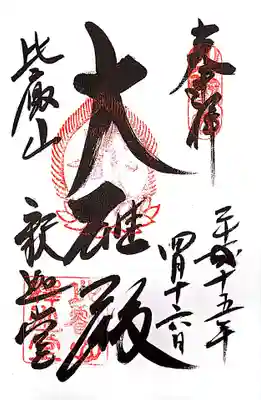 奉拝
平成十五年
四月十六日
大雄殿
比叡山
釈迦堂